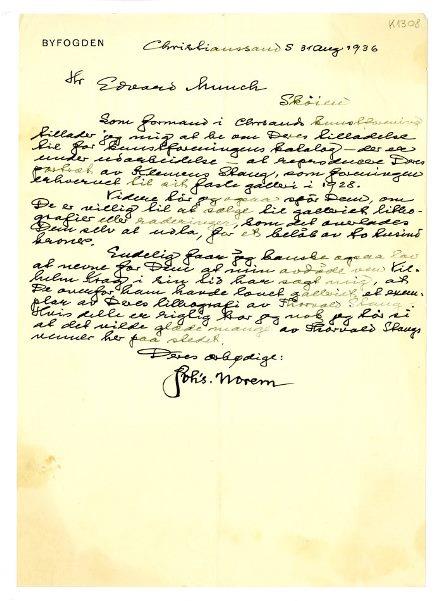 K1308
BYFOGDEN
Christianssand S 31 aug 1936
Hr Edvard Munch
Skøien
Som formand i Chrsands kunstforening
tillader jeg mig at be om Deres tilladelse
til for kunstforeningens katalog – der er
under utarbeidelse – at reproducere Deres
portræt av Klemens Stang, som foreningen
erhvervet til sit faste galleri i 1928.
Videre tør jeg spør Dem, om
De er villig til at sælge til galleriet litho-
grafier eller raderinger, som det overlades
Dem selv at vælge, for et beløb av to hundre
kroner.
Endelig faar jeg kanske ogsaa lov
at nevne for Dem at min avdøde ven Vil-
helm Krag i sin tid har sagt mig, at
De overfor ham hande lovet galleriet et exem-
plar av Deres lithografi av Thorvald Stang.
Hvis dette er rigtig tror jeg nok jeg tør si
at det vilde glæde mange av Thorvald Stangs
venner her paa stedet.
Deres ærbødige:
Johs. Norem